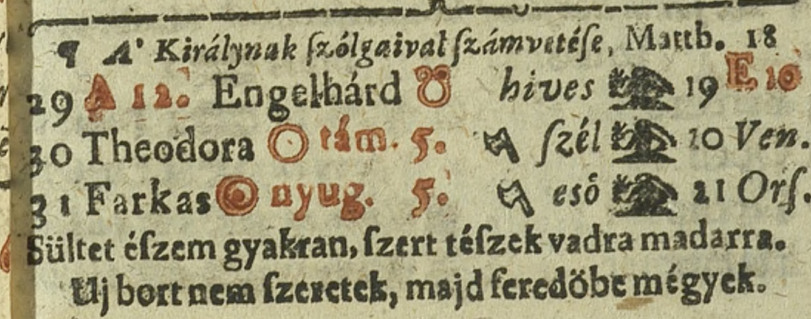 ¶ A' Királynak ſzólgaival ſzámvetéſe, Matth. 18
29 A 12. Engelhárd ♉ hives 19 E 10
30 Theodora ☉ tám. 5. ſzél 20 Ven.
31 Farkas ☉ nyug. 5. eső 21 Orſ
Sültet éſzem gyakran, ſzert téſzek vadra madarra.
Uj bort nem ſzeretek, majd feredőbe mégyek.